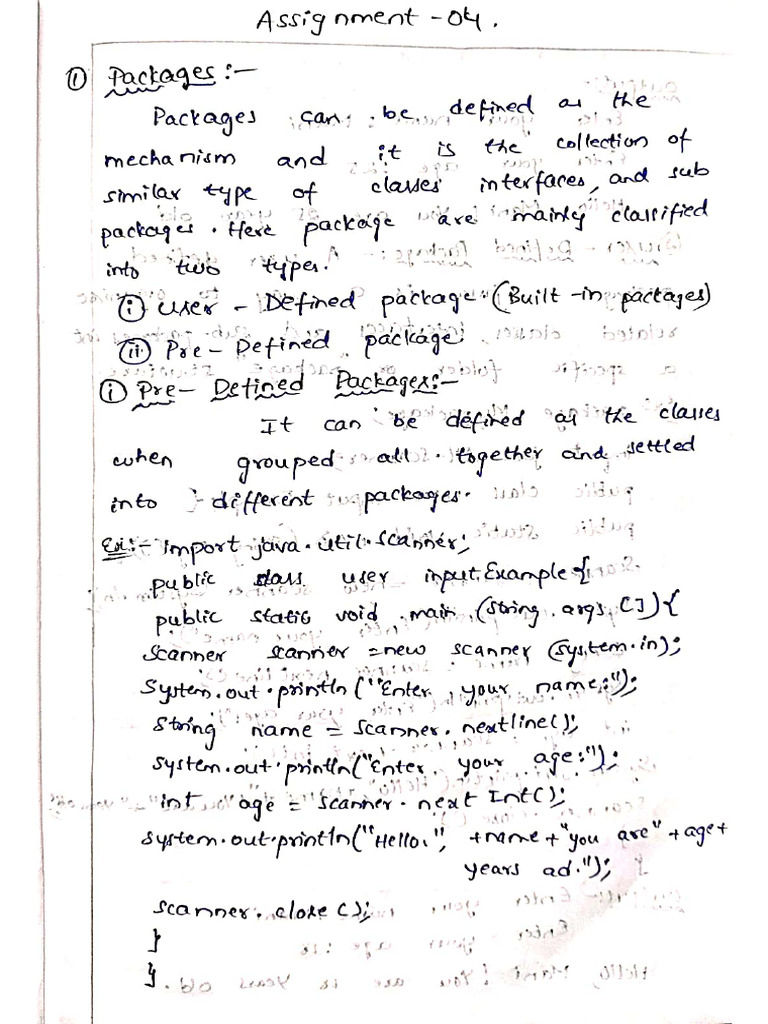 Assignment - 04.
① Packages :-
Packages can be defined as the
mechanism and it is the collection of
similar type of classes interfaces, and sub
packages. Here package are mainly classified
into two types.
(i) User - Defined package. (Built-in packages)
(ii) Pre - Defined package
(i) Pre - Defined Packages:-
It can be defined as the classes
when grouped all together and settled
into different packages.
Ex:- import java.util.scanner;
public class user input Example {
public static void main (string args []) {
scanner scanner = new scanner (system.in);
System.out.println ("Enter your name:");
String name = scanner.nextline();
system.out.println("Enter your age:");
int age = scanner.next Int();
system.out.println("Hello,", +name+"you are"+age+
years ad.");
scanner.close();
}
}